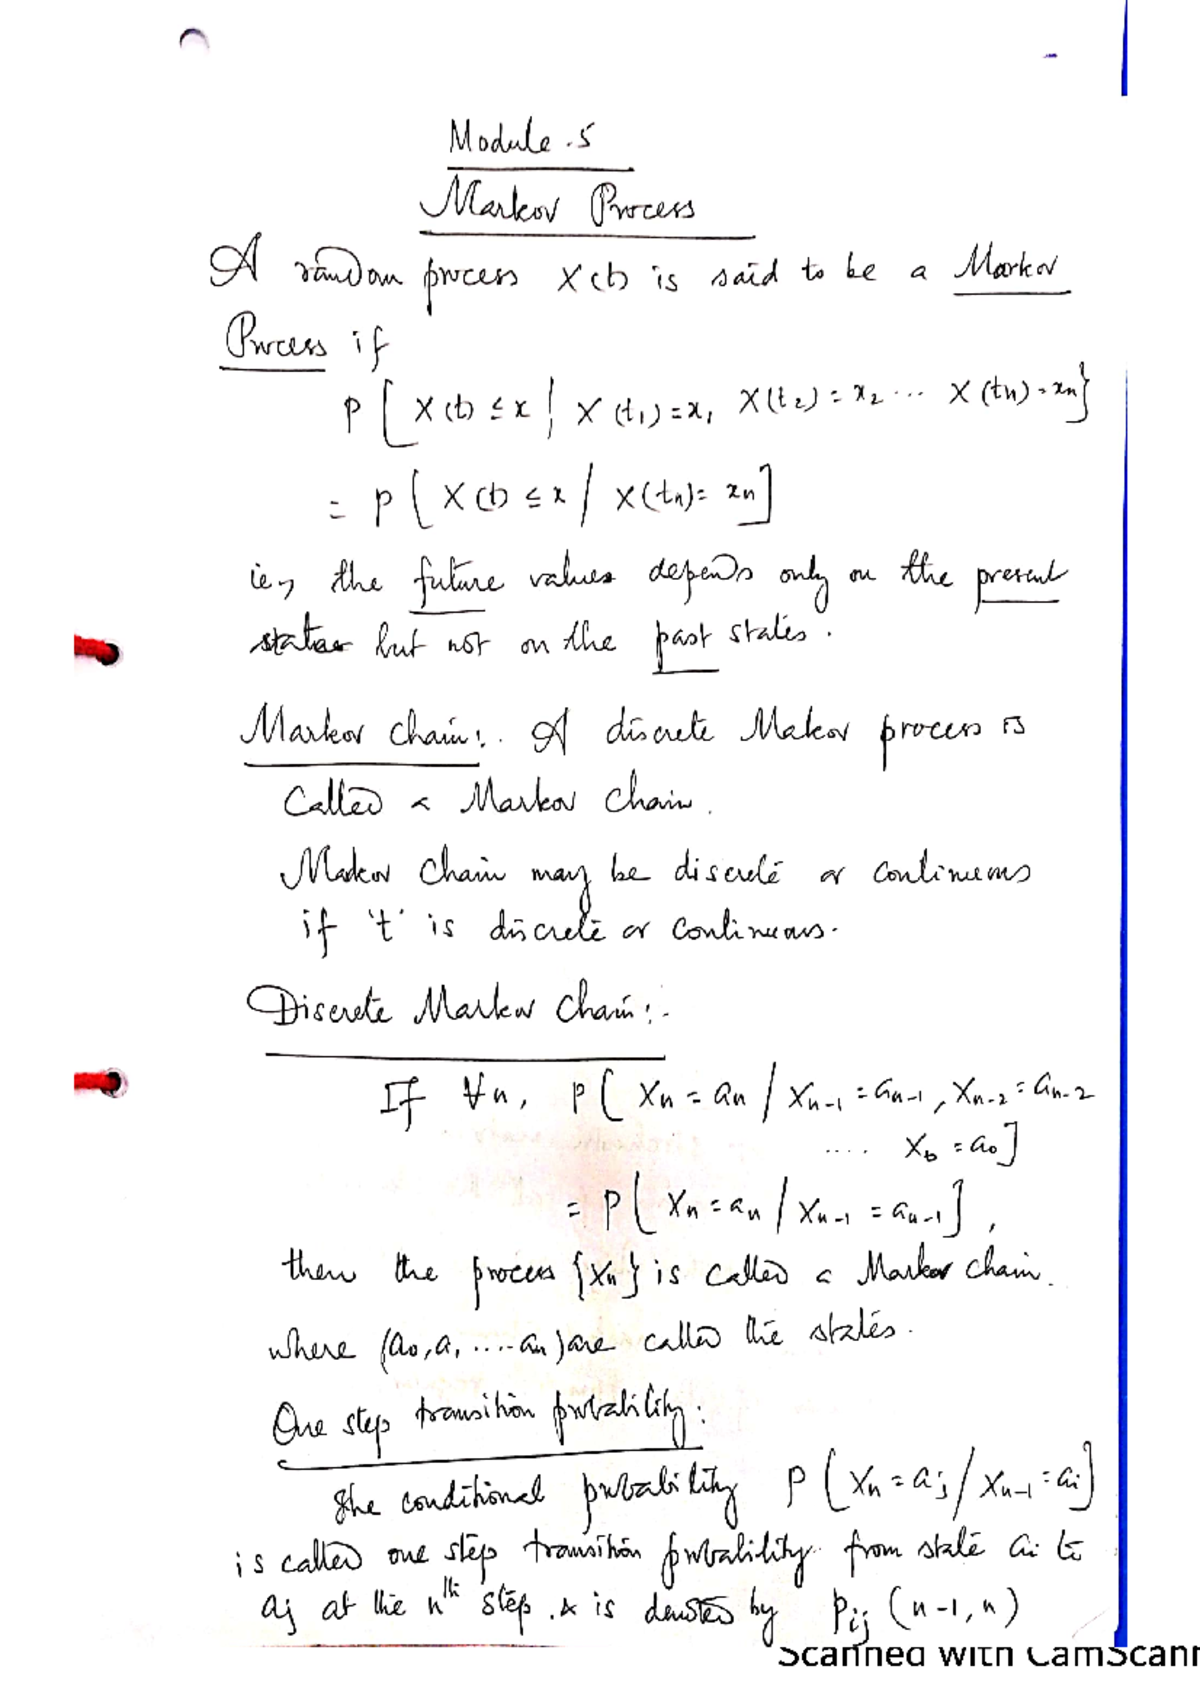 Module.5
Markov Process
A random process X(t) is said to be a Markov
Process if
P[X(t) ≤ x | X(t₁)=x₁ X(t₂)=x₂ ... X(tn)=xn}
= P[X(t) ≤ x / X(tn)= xn]
ie, the future values depends only on the present
states but not on the past states.
Markov chain:. A discrete Makov process is
Called a Markov Chain.
Makov Chain may be discrete or continuous
if 't' is discrete or continuous.
Discrete Markov Chain:.
If ∀n, P[Xn = an / Xn-1 = an-1, Xn-2 = an-2
.... X₀ = a₀]
= P[Xn = an / Xn-1 = an-1],
then the process {Xn} is called a Markov chain.
where (a₀, a₁ ..... an) are called the states.
One step transition probability:
The conditional probability P[Xn = aj / Xn-1 = ai]
is called one step transition probability from state ai to
aj at the nth step. & is denoted by Pij (n-1, n)
Scanned with CamScann